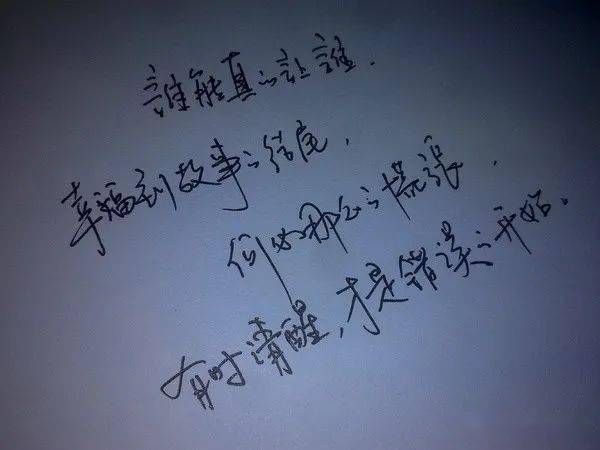 誰能真的让誰.
幸福到故事的结尾,
何必那么的慌張,
有时清醒,才是错误的开始。